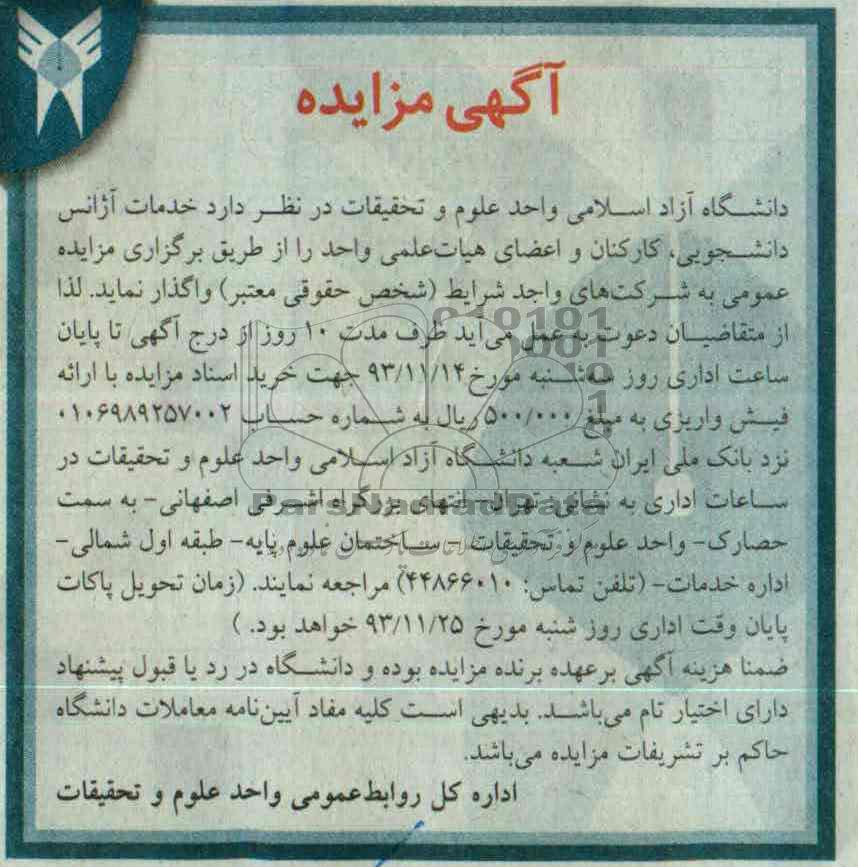 آگهی مزایده
دانشگاه آزاد اسلامی واحد علوم و تحقیقات در نظر دارد خدمات آژانس
دانشجویی، کارکنان و اعضای هیات‌علمی واحد را از طریق برگزاری مزایده
عمومی به شرکت‌های واجد شرایط (شخص حقوقی معتبر) واگذار نماید. لذا
از متقاضیان دعوت به عمل می‌آید ظرف مدت ۱۰ روز از درج آگهی تا پایان
ساعت اداری روز سه‌شنبه مورخ ۹۳/۱۱/۱۴ جهت خرید اسناد مزایده با ارائه
فیش واریزی به مبلغ ۵۰۰/۰۰۰ ریال به شماره حساب ۰۱۰۶۹۸۹۲۵۷۰۰۲
نزد بانک ملی ایران شعبه دانشگاه آزاد اسلامی واحد علوم و تحقیقات در
ساعات اداری به نشانی: تهران- انتهای بزرگراه اشرفی اصفهانی- به سمت
ParsNamadData
حصارک- واحد علوم و تحقیقات - ساختمان علوم پایه- طبقه اول شمالی-
اداره خدمات- (تلفن تماس: ۴۴۸۶۶۰۱۰) مراجعه نمایند. (زمان تحویل پاکات
پایان وقت اداری روز شنبه مورخ ۹۳/۱۱/۲۵ خواهد بود. )
ضمنا هزینه آگهی برعهده برنده مزایده بوده و دانشگاه در رد یا قبول پیشنهاد
دارای اختیار تام می‌باشد. بدیهی است کلیه مفاد آیین‌نامه معاملات دانشگاه
حاکم بر تشریفات مزایده می‌باشد.
اداره کل روابط‌عمومی واحد علوم و تحقیقات